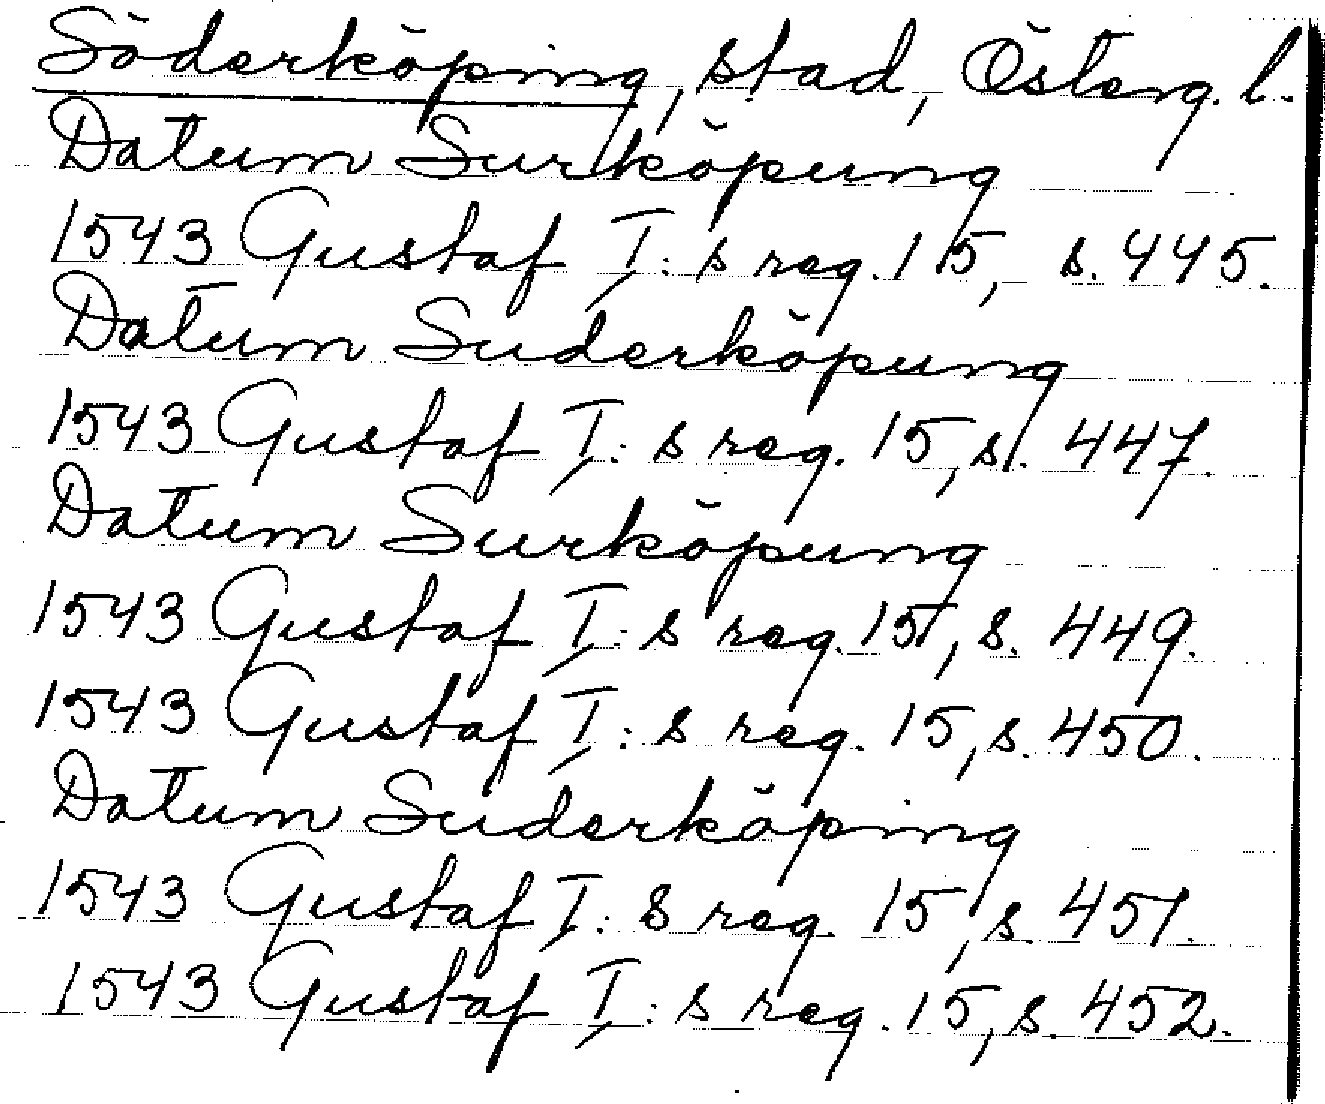 Söderköping, stad, Österg. l.
Datum Surköpung
1543 Gustaf I: s reg. 15, s. 445.
Datum Suderköpung
1543 Gustaf I: s reg. 15, s. 447.
Datum Surköpung
1543 Gustaf I: s reg. 15, s. 449.
1543 Gustaf I: s reg. 15, s. 450.
Datum Suderköping
1543 Gustaf I: s reg. 15, s. 451.
1543 Gustaf I: s reg. 15, s. 452.